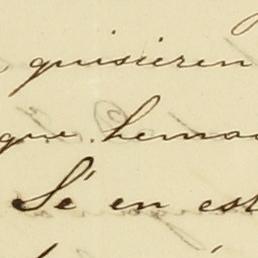 quisieren
que hemo
Sé en est